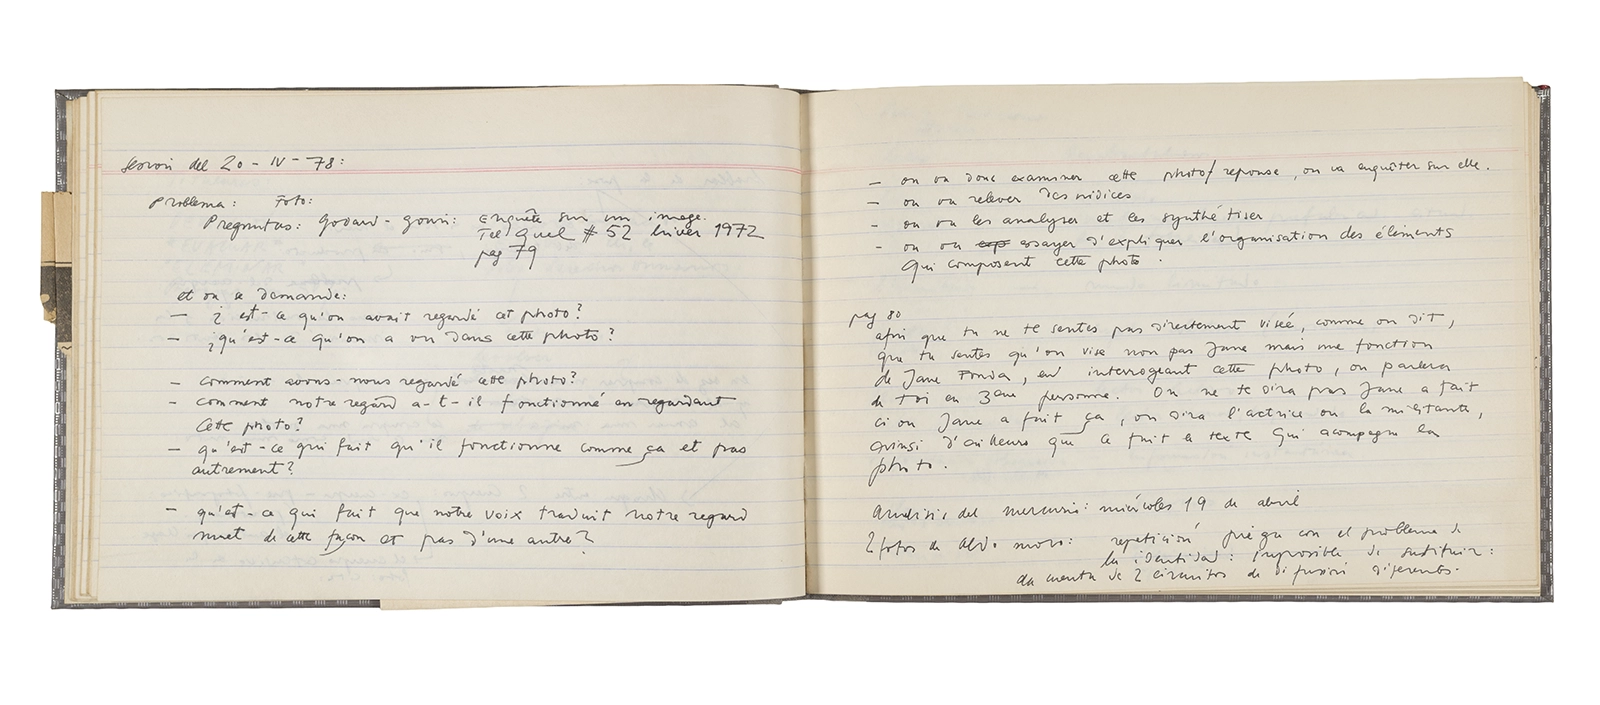 sesión del 20 - IV - 78:
Problema: Foto:
Preguntas: Godard - Gorin: Enquête sur un image.
Tel Quel # 52 hiver 1972
pag 79
et on se demande:
— ¿ est-ce qu'on avait regardé cet photo?
— ¿qu'est-ce qu'on a vu dans cette photo?
— comment avons-nous regardé cette photo?
— comment notre regard a-t-il fonctionné en regardant
cette photo?
— qu'est-ce qui fait qu'il fonctionne comme ça et pas
autrement?
— qu'est-ce qui fait que notre voix traduit notre regard
muet de cette façon et pas d'une autre?
— on va donc examiner cette photo/reponse, on va enquêter sur elle.
— on va relever des indices
— on va les analyser et les synthétiser
— on va exp essayer d'expliquer l'organisation des éléments
qui composent cette photo.
pag 80
afin que tu ne te sentes pas directement visée, comme on dit,
que tu sentes qu'on vise non pas Jane mais une fonction
de Jane Fonda, en interrogeant cette photo, on parlera
de toi en 3ème personne. On ne te dira pas Jane a fait
ci ou Jane a fait ça, on dira l'actrice ou la militante,
ainsi d'ailleurs que le fait le texte qui acompagne la
photo.
Analisis del mercurio: miércoles 19 de abril
2 fotos de Aldo Moro: repetición juega con el problema de
la identidad: imposible de sustituir:
da cuenta de 2 circuitos de difusión diferentes.